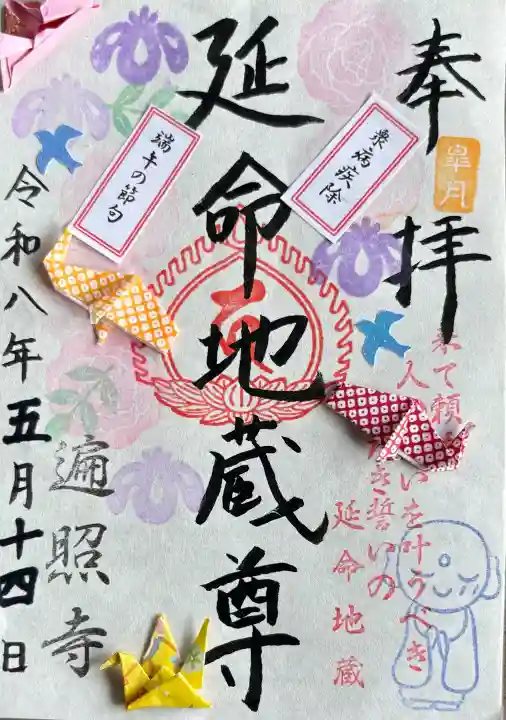 奉拝
皐月
衆病疾除
延命地蔵尊
端午の節句
令和八年五月十四日
遍照寺
来て頼
人
いを叶うべき
き誓いの
延命地蔵